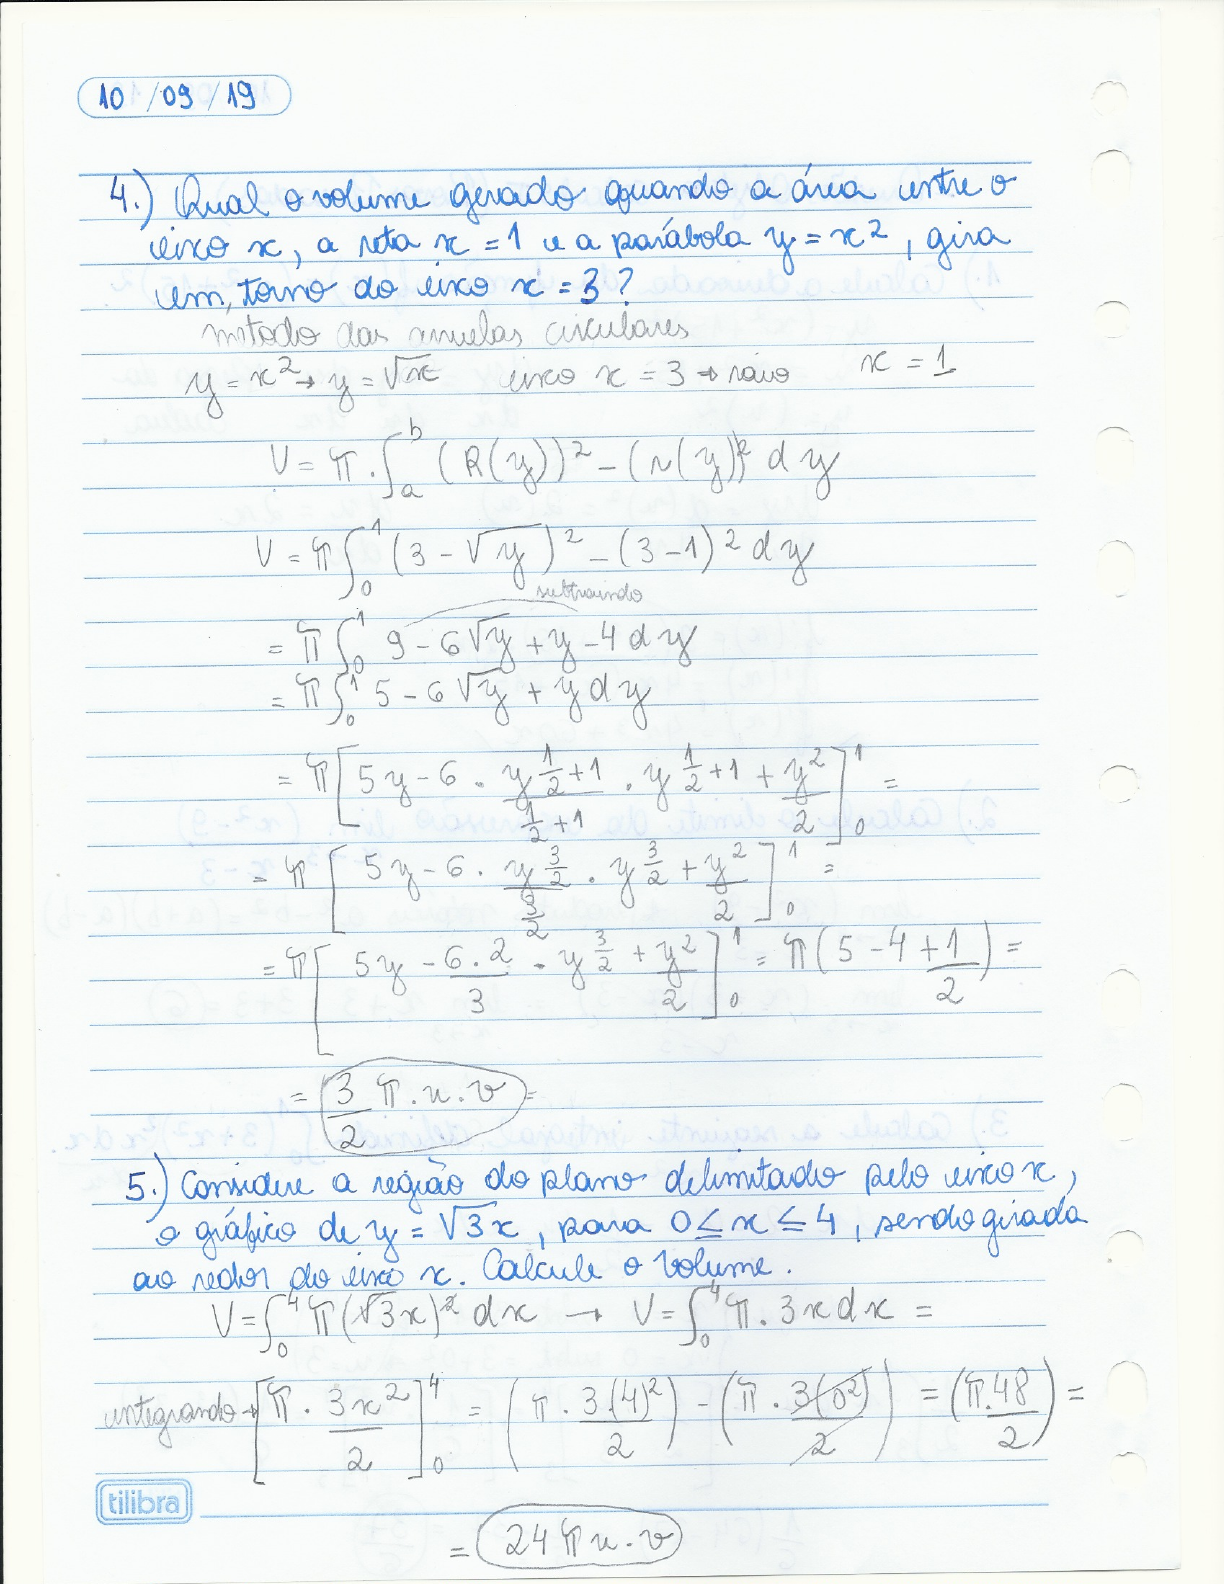 10/09/19
4.) Qual o volume gerado quando a área entre o
eixo x, a reta x = 1 e a parábola y = x², gira
em, torno do eixo x = 3?
método das arruelas circulares
y = x² → y = √x eixo x = 3 → raio x = 1
V = π · ∫ₐᵇ (R(y))² – (r(y))² dy
V = π ∫₀¹ (3 – √y)² – (3 – 1)² dy
subtraindo
= π ∫₀¹ 9 – 6√y + y – 4 dy
= π ∫₀¹ 5 – 6√y + y dy
= π [5y – 6 · y^(1/2+1)/(1/2+1) · y^(1/2+1) + y²/2]₀¹ =
= π [5y – 6 · y^(3/2)/(3/2) · y^(3/2) + y²/2]₀¹ =
= π [5y – 6·2/3 · y^(3/2) + y²/2]₀¹ = π (5 – 4 + 1/2) =
= 3/2 π · u · v =
5.) Considere a região do plano delimitado pelo eixo x,
o gráfico de y = √3x, para 0 ≤ x ≤ 4, sendo girada
ao redor do eixo x. Calcule o volume.
V = ∫₀⁴ π(√3x)² dx → V = ∫₀⁴ π · 3x dx =
integrando → [π · 3x²/2]₀⁴ = (π · 3·(4)²/2) – (π · 3(0²)/2) = (π·48/2) =
tilibra
= 24 π u · v